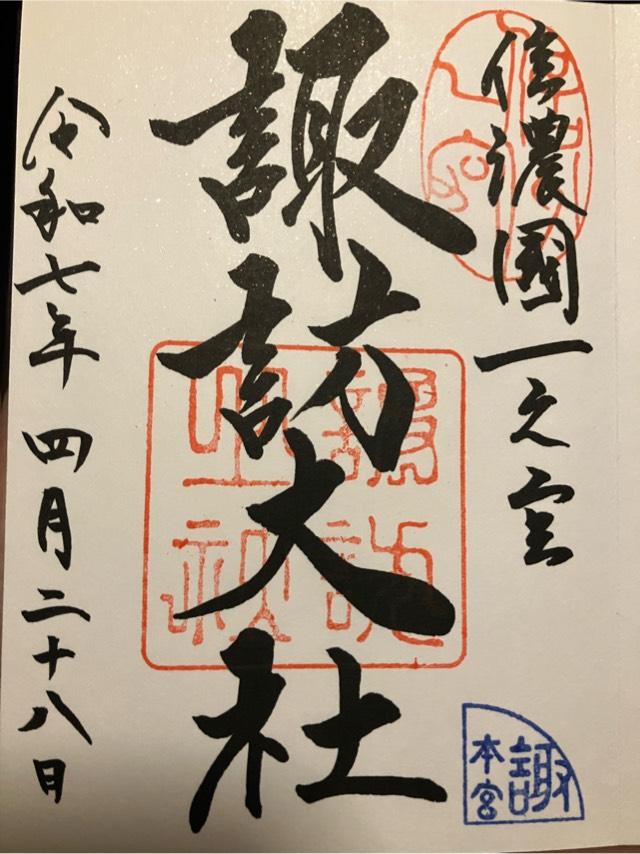 信濃國一之宮
諏訪大社
令和七年四月二十八日
諏
本宮